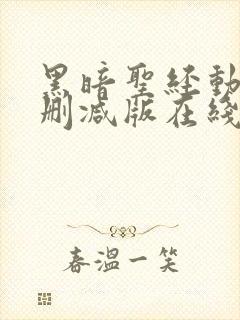 黑暗聖経動
刪減版在綫
春溫一笑